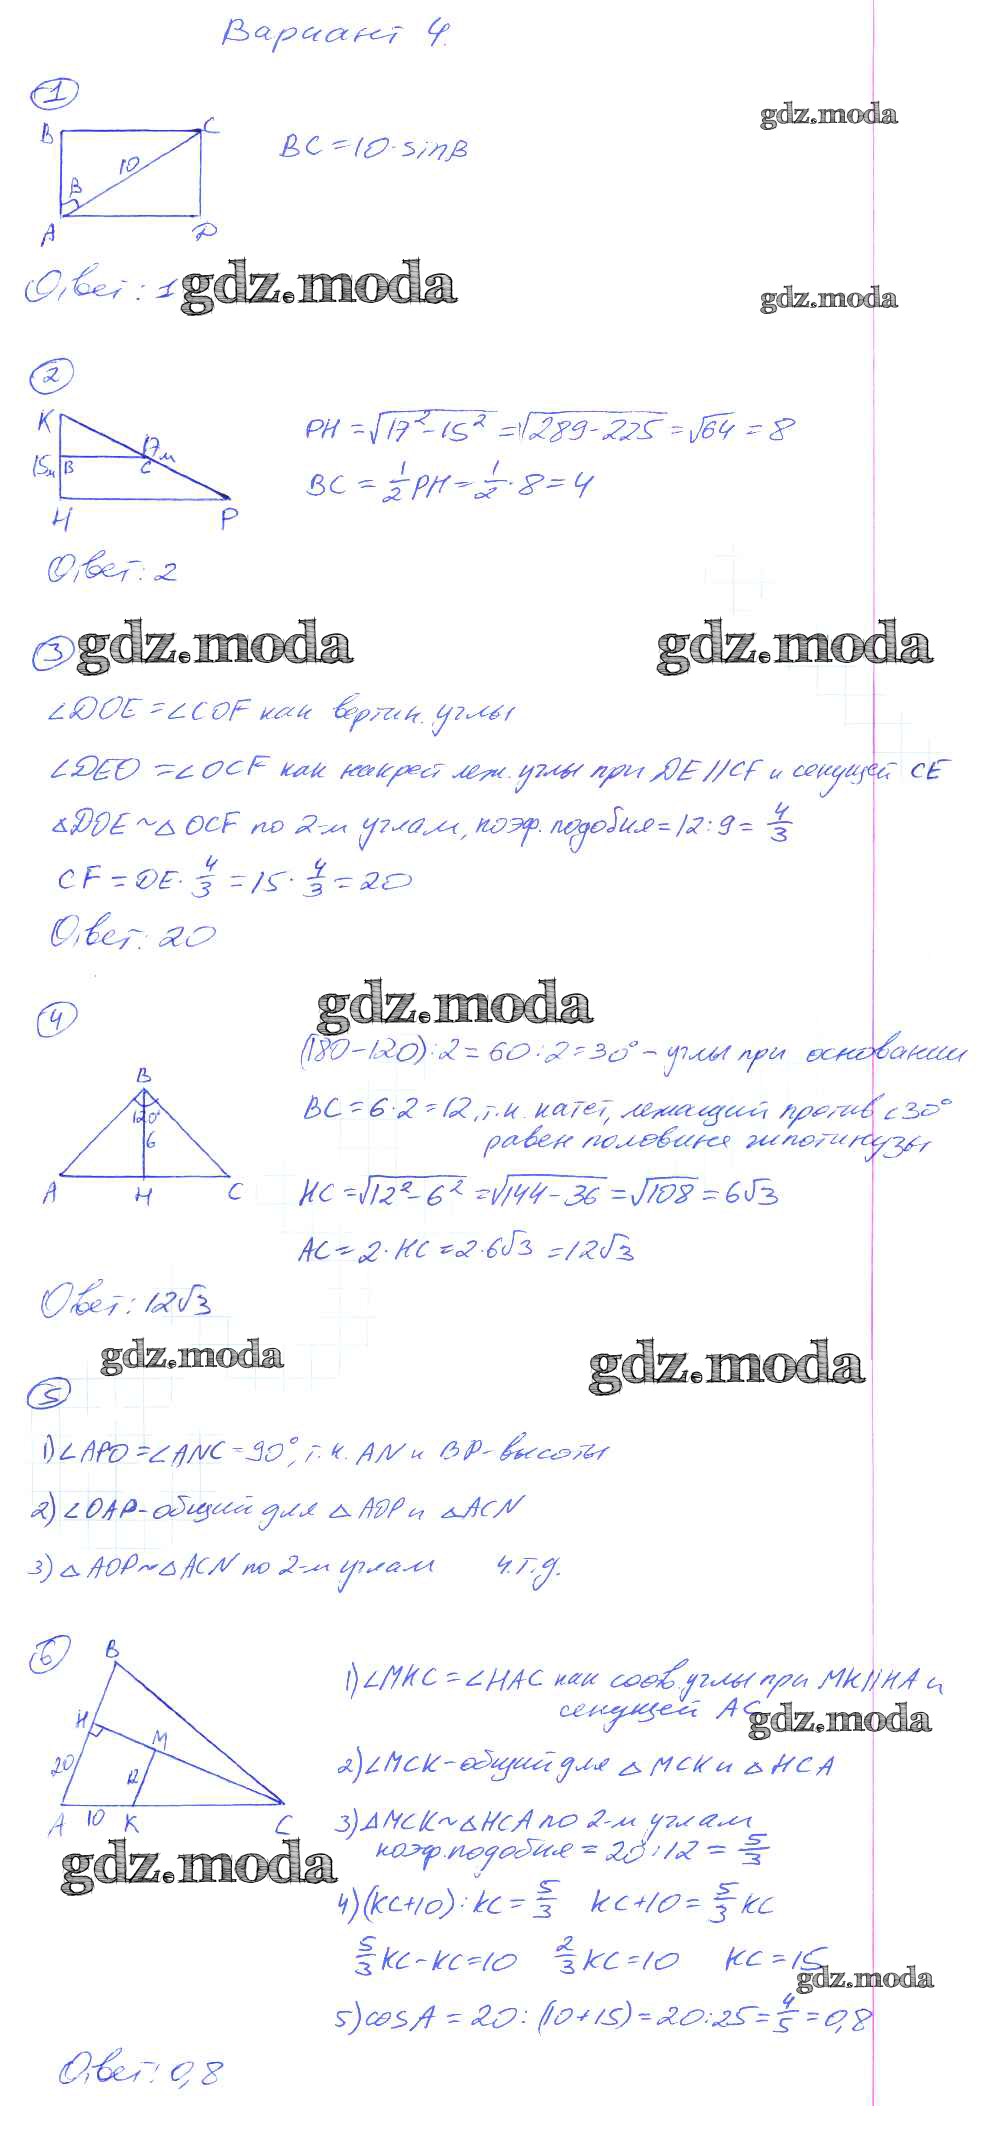 Вариант 4.
1
gdz.moda
B C
BC = 10·sinβ
10
β
A D
Ответ: 1
gdz.moda
gdz.moda
2
K
17м
15м B C
H P
PH = √17²-15² = √289-225 = √64 = 8
BC = 1/2 PH = 1/2 · 8 = 4
Ответ: 2
3
gdz.moda
gdz.moda
∠DOE = ∠COF как вертик. углы
∠DEO = ∠OCF как накрест леж. углы при DE//CF и секущей CE
△DOE ~ △OCF по 2-м углам, коэф. подобия = 12:9 = 4/3
CF = DE · 4/3 = 15 · 4/3 = 20
Ответ: 20
gdz.moda
4
(180-120):2 = 60:2 = 30° - углы при основании
B
120°
6
A H C
BC = 6·2 = 12, т.к. катет, лежащий против ∠30°
равен половине гипотинузы
HC = √12²-6² = √144-36 = √108 = 6√3
AC = 2·HC = 2·6√3 = 12√3
Ответ: 12√3
gdz.moda
gdz.moda
5
1) ∠APO = ∠ANC = 90°, т.к. AN и BP - высоты
2) ∠OAP - общий для △AOP и △ACN
3) △AOP ~ △ACN по 2-м углам ч.т.д.
6
B
H
M
20
12
A 10 K C
1) ∠MKC = ∠HAC как соотв. углы при MK//HA и
секущей AC
gdz.moda
2) ∠MCK - общий для △MCK и △HCA
3) △MCK ~ △HCA по 2-м углам
коэф. подобия = 20:12 = 5/3
gdz.moda
4) (KC+10):KC = 5/3 KC+10 = 5/3 KC
5/3 KC - KC = 10 2/3 KC = 10 KC = 15
gdz.moda
5) cosA = 20:(10+15) = 20:25 = 4/5 = 0,8
Ответ: 0,8